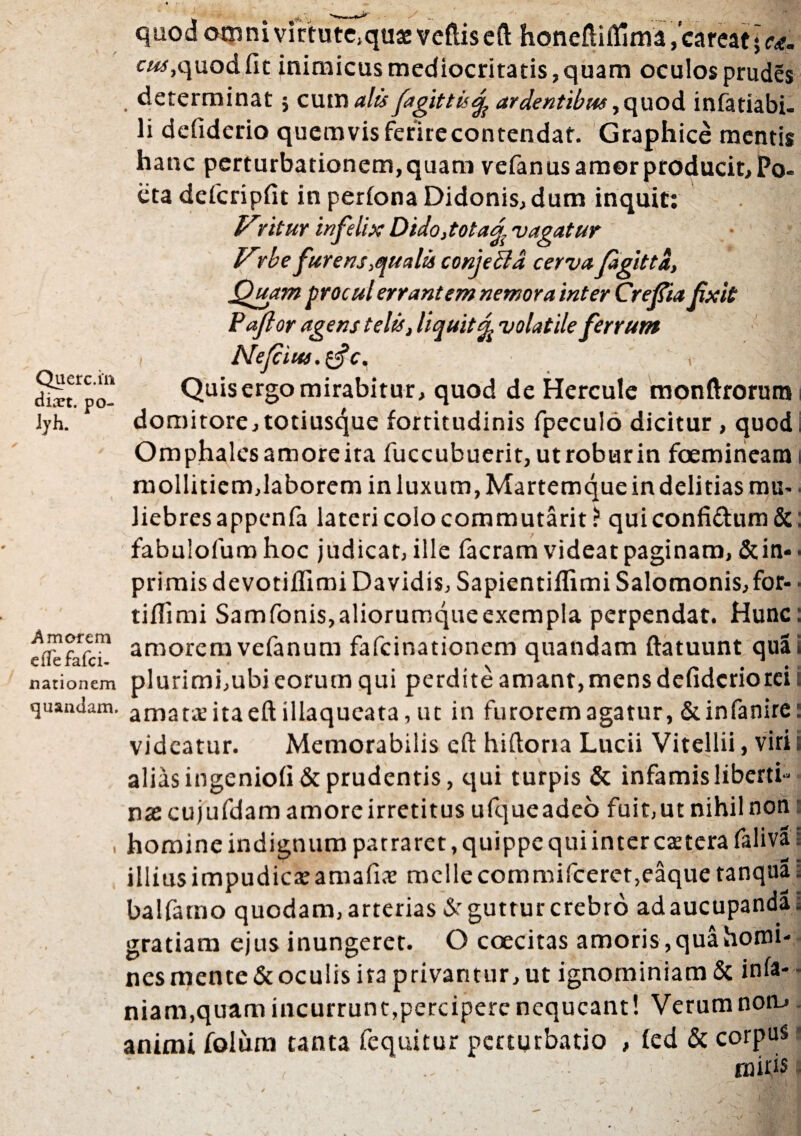 quod omni virtute, quæ vestis est honestissima, careat; cæ-
cus, quod sit inimicus mediocritatis, quam oculos prudēs
determinat; cum alis sagittisq; ardentibus, quod insatiabi-
li desiderio quemvis ferire contendat. Graphicè mentis
hanc perturbationem, quam vesanus amor producit, Po-
ëta descripsit in persona Didonis, dum inquit:
Vritur infelix Dido, totaq; vagatur
Vrbe furens, qualis conjectâ cerva sagittâ,
Quam procul errantem nemora inter Cressia fixit
Pastor agens telis, liquitq; volatile ferrum
Nescius. &c.
Querc. in
diæt. po-
lyh.
Quis ergo mirabitur, quod de Hercule monstrorum
domitore, totiusque fortitudinis speculò dicitur, quod
Omphales amore ita succubuerit, ut robur in fœmineam
mollitiem, laborem in luxum, Martemque in delitias mu-
liebres appensa lateri colo commutârit? qui confictum &
fabulosum hoc judicat, ille sacram videat paginam, & in-
primis devotissimi Davidis, Sapientissimi Salomonis, for-
tissimi Samsonis, aliorumque exempla perpendat. Hunc
Amorem
esse fasci-
nationem
quandam.
amorem vesanum fascinationem quandam statuunt quā
plurimi, ubi eorum qui perditè amant, mens desiderio rei
amatæ ita est illaqueata, ut in furorem agatur, & insanire
videatur. Memorabilis est historia Lucii Vitellii, viri
aliàs ingeniosi & prudentis, qui turpis & infamis liberti-
næ cujusdam amore irretitus usque adeò fuit, ut nihil non
homine indignum patraret, quippe qui inter cætera salivā
illius impudicæ amasiæ melle commisceret, eâque tanquā
balsamo quodam, arterias & guttur crebrò ad aucupandā
gratiam ejus inungeret. O cœcitas amoris, quâ homi-
nes mente & oculis ita privantur, ut ignominiam & insa-
niam, quam incurrunt, percipere nequeant! Verum non
animi solùm tanta sequitur perturbatio, sed & corpus
miris